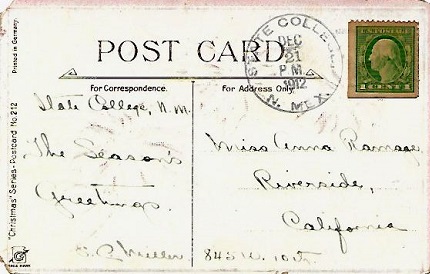 POST CARD
Printed in Germany.
For Correspondence.
For Address Only.
STATE COLLEGE
DEC
21
P M
1912
N. MEX.
1 CENT 1
State College, N. M.
The Season's
Greetings
Miss Anna Ramage
Riverside,
California
845 W. 10th
"Christmas" Series-Postcard No. 212